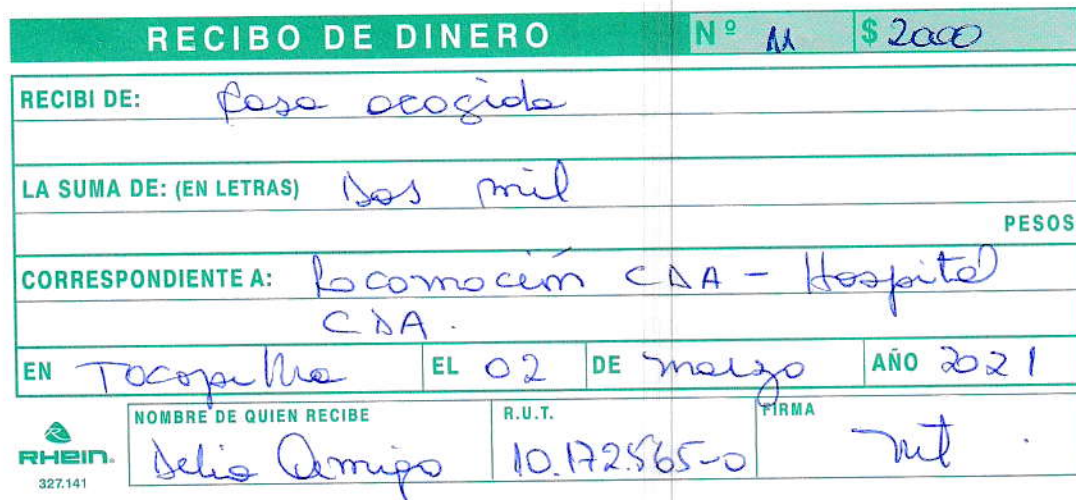 RECIBO DE DINERO Nº 11 $ 2000
RECIBI DE: Casa acogida
LA SUMA DE: (EN LETRAS) Dos mil
PESOS
CORRESPONDIENTE A: Locomoción CDA - Hospital
CDA.
EN Tocopilla EL 02 DE marzo AÑO 2021
NOMBRE DE QUIEN RECIBE R.U.T. FIRMA
Delia Amigo 10.172.565-0
RHEIN.
327.141